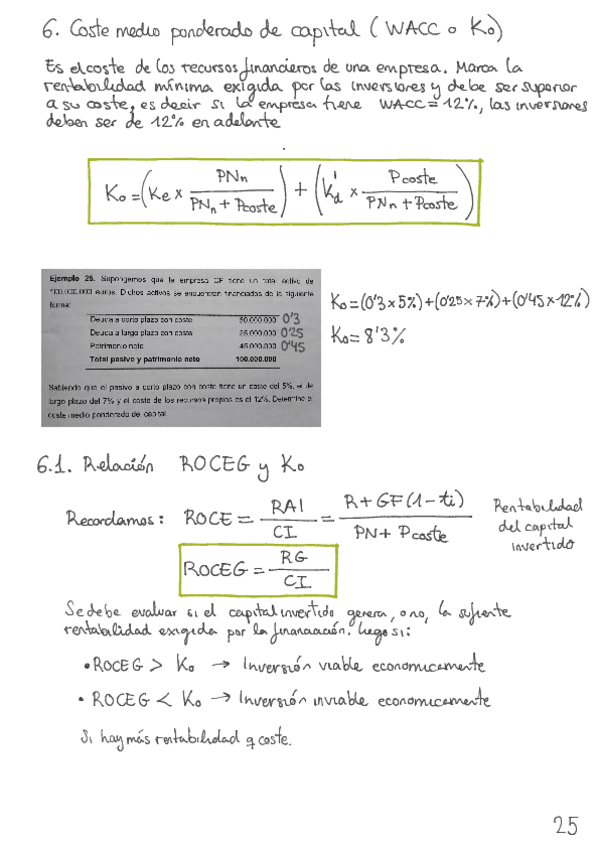 6. Coste medio ponderado de capital (WACC o Ko)
Es el coste de los recursos financieros de una empresa. Marca la
rentabilidad mínima exigida por los inversiones y debe ser superior
a su coste, es decir si la empresa tiene WACC = 12%, las inversiones
deben ser de 12% en adelante
Ko = (Ke x PNn / PNn + Pcoste) + (K'd x Pcoste / PNn + Pcoste)
Ejemplo 25. Supongamos que la empresa CF tiene un total activo de
100.000.000 euros. Dichos activos se encuentran financiados de la siguiente
forma:
Deuda a corto plazo con coste 30.000.000 0'3
Deuda a largo plazo con coste 25.000.000 0'25
Patrimonio neto 45.000.000 0'45
Total pasivo y patrimonio neto 100.000.000
Sabiendo que el pasivo a corto plazo con coste tiene un coste del 5%, el de
largo plazo del 7% y el coste de los recursos propios es el 12%. Determine el
coste medio ponderado del capital
Ko = (0'3 x 5%) + (0'25 x 7%) + (0'45 x 12%)
Ko = 8'3%
6.1. Relación ROCEG y Ko
Recordamos: ROCE = RAI / CI = R + GF (1 - ti) / PN + Pcoste
Rentabilidad
del capital
invertido
ROCEG = RG / CI
Se debe evaluar si el capital invertido genera, o no, la sufiente
rentabilidad exigida por la financiación. Luego si:
• ROCEG > Ko → Inversión viable economicamente
• ROCEG < Ko → Inversión inviable economicamente
Si hay más rentabilidad q coste.
25